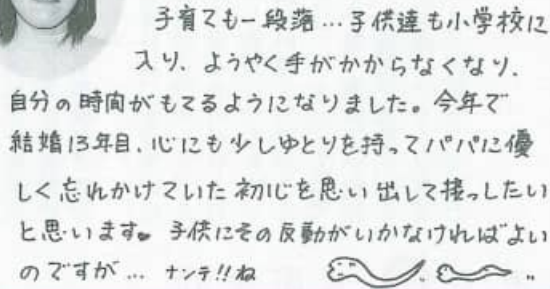 子育ても一段落…子供達も小学校に
入り、ようやく手がかからなくなり、
自分の時間がもてるようになりました。今年で
結婚13年目、心にも少しゆとりを持ってパパに優
しく忘れかけていた初心を思い出して接っしたい
と思います。子供にその反動がいかなければよい
のですが… ナンテ!!ね